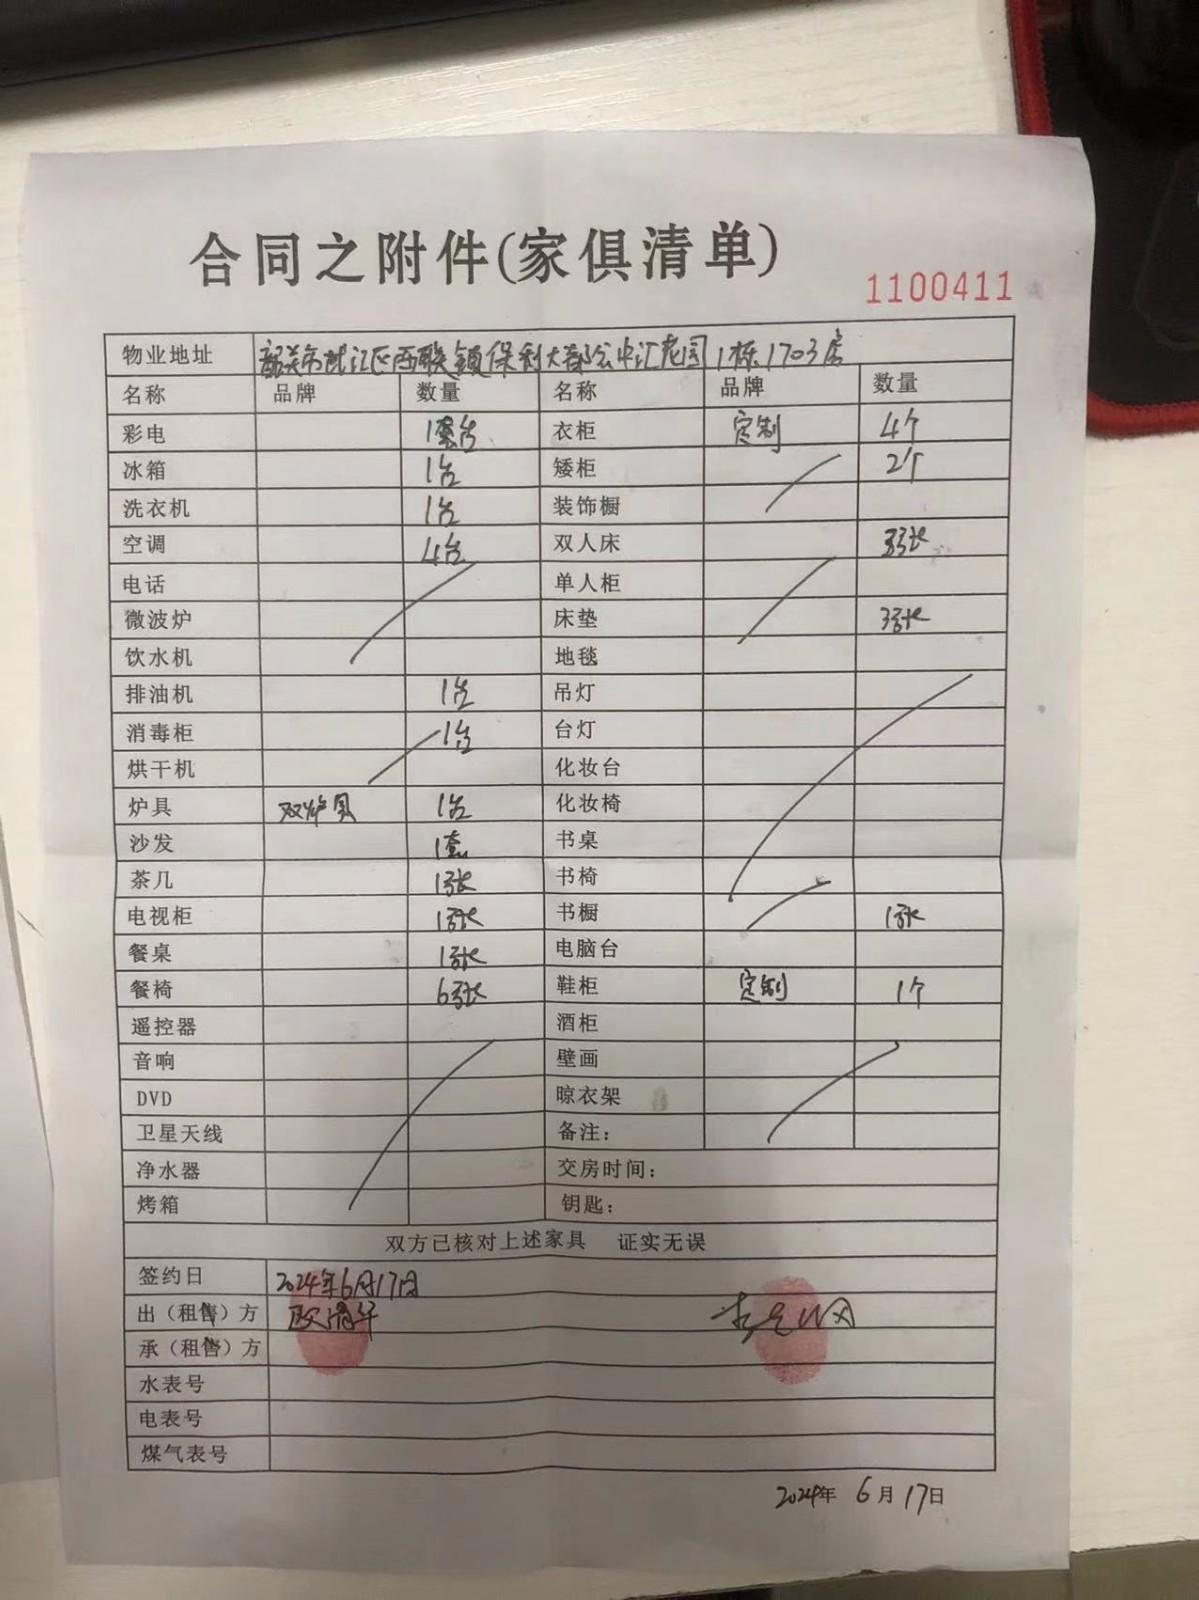 合同之附件(家俱清单)
1100411
物业地址 韶关市武江区西联镇保利大都会中汇花园1栋1703房
名称 品牌 数量 名称 品牌 数量
彩电 1台 衣柜 定制 4个
冰箱 1台 矮柜 2个
洗衣机 1台 装饰橱
空调 4台 双人床 3张
电话 单人柜
微波炉 床垫 3张
饮水机 地毯
排油机 1台 吊灯
消毒柜 1台 台灯
烘干机 化妆台
炉具 双炉具 1台 化妆椅
沙发 1套 书桌
茶几 1张 书椅
电视柜 1张 书橱 1张
餐桌 1张 电脑台
餐椅 6张 鞋柜 定制 1个
遥控器 酒柜
音响 壁画
DVD 晾衣架
卫星天线 备注：
净水器 交房时间：
烤箱 钥匙：
双方已核对上述家具 证实无误
签约日 2024年6月17日
出（租售）方
承（租售）方
水表号
电表号
煤气表号
2024年 6月17日